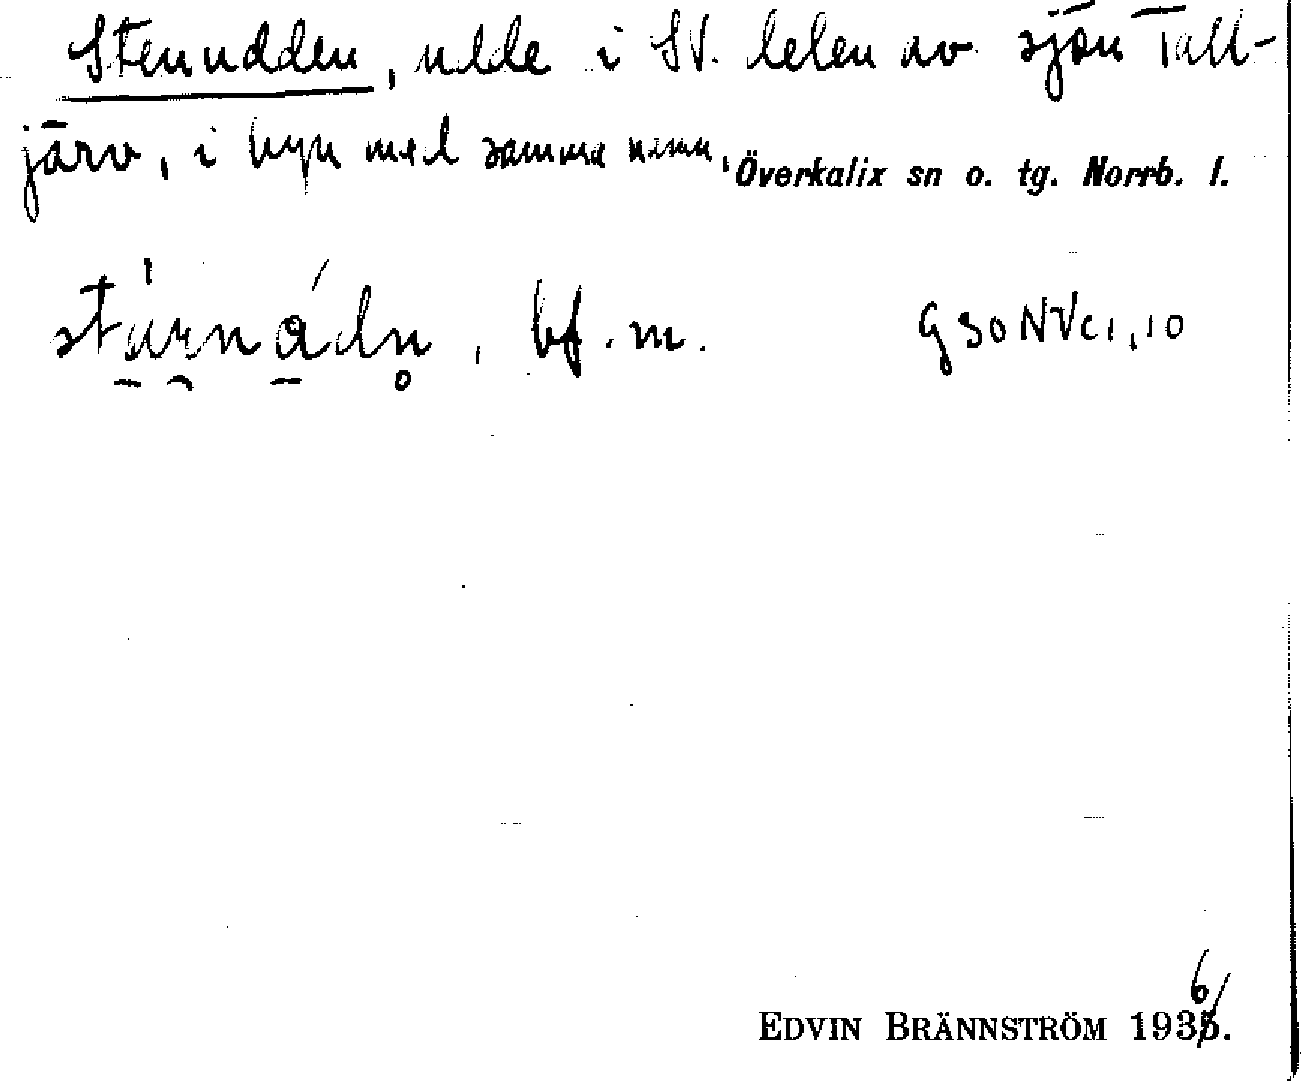 Stenudden, udde i SV. delen av sjön Tall-
järv, i byn med samma namn, Överkalix sn o. tg. Norrb. l.
bf. m. G 30 NV c 1, 10
6
EDVIN BRÄNNSTRÖM 1935.